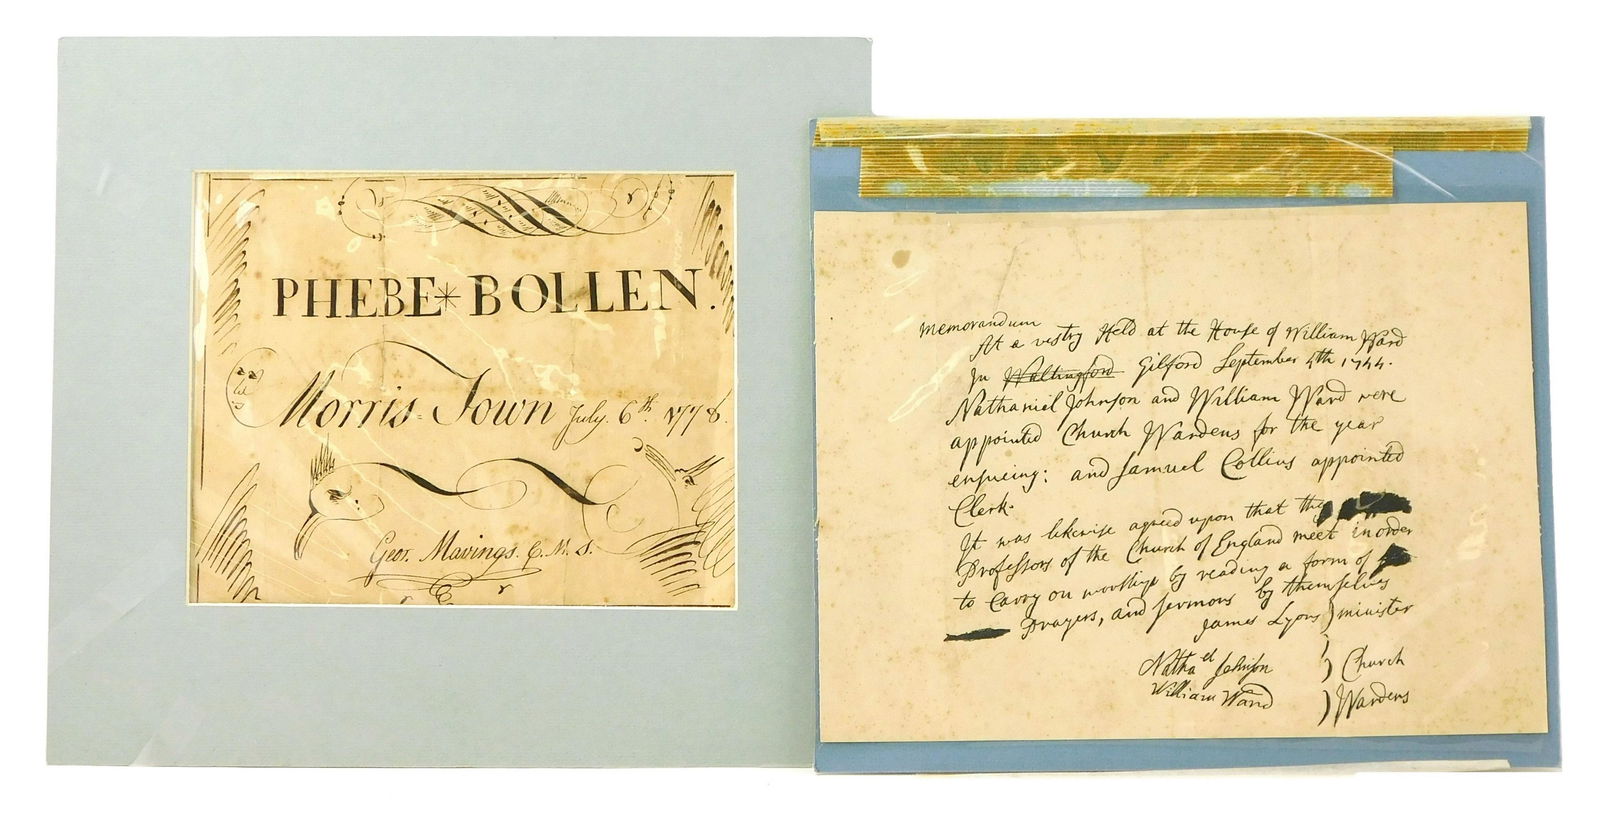 PHEBE * BOLLEN.
Morris-Town July. 6th. 1778.
Geor. Mavings. C. M. S.
Memorandum
At a vestry Held at the House of William Ward
In Wallingford Gilford September 4th 1744.
Nathaniel Johnson and William Ward were
appointed Church Wardens for the year
ensueing: and Samuel Collins appointed
Clerk.
It was likewise agreed upon that the
Professors of the Church of England meet in order
to Carry on worship by reading a form of
Prayers, and sermons by themselves
James Lyons ) minister
Nathael Johnson ) Church
William Ward ) Wardens